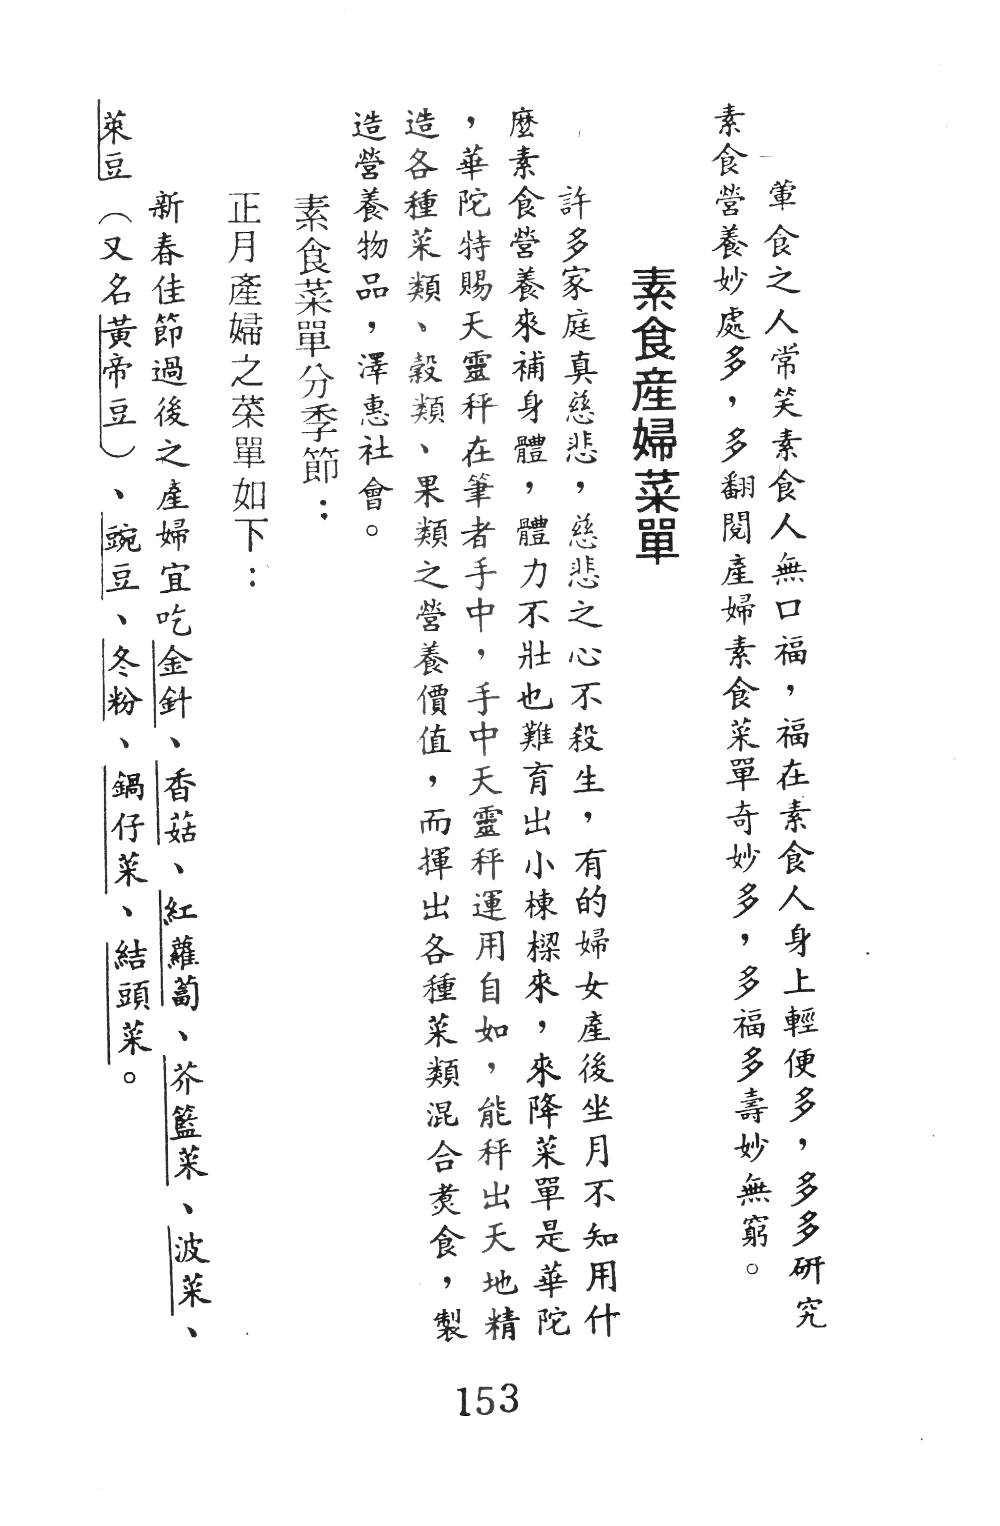 葷食之人常笑素食人無口福，福在素食人身上輕便多，多多研究
素食營養妙處多，多翻閱產婦素食菜單奇妙多，多福多壽妙無窮。
素食産婦菜單
許多家庭真慈悲，慈悲之心不殺生，有的婦女產後坐月不知用什
麼素食營養來補身體，體力不壯也難育出小棟樑來，來降菜單是華陀
，華陀特賜天靈秤在筆者手中，手中天靈秤運用自如，能秤出天地精
造各種菜類、穀類、果類之營養價值，而揮出各種菜類混合煑食，製
造營養物品，澤惠社會。
素食菜單分季節：
正月產婦之菜單如下：
新春佳節過後之產婦宜吃金針、香菇、紅蘿蔔、芥籃菜、波菜、
萊豆（又名黃帝豆）、豌豆、冬粉、鍋仔菜、結頭菜。
153